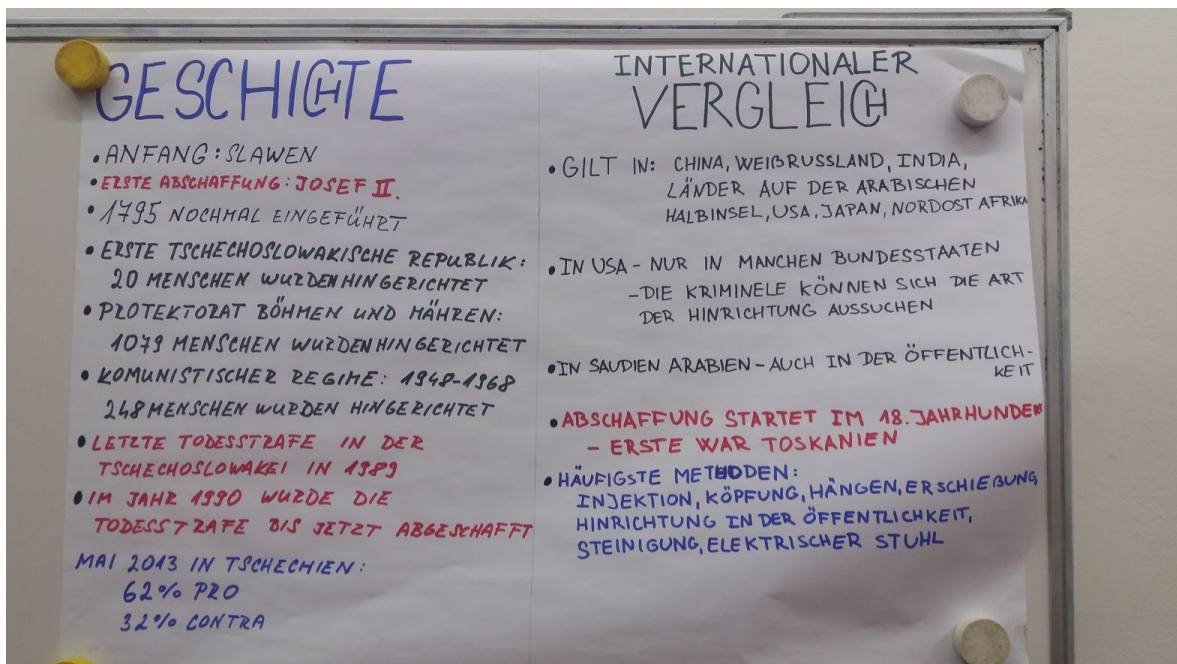 GESCHICHTE
• ANFANG: SLAWEN
• ERSTE ABSCHAFFUNG: JOSEF II.
• 1795 NOCHMAL EINGEFÜHRT
• ERSTE TSCHECHOSLOWAKISCHE REPUBLIK:
20 MENSCHEN WURDEN HINGERICHTET
• PROTEKTORAT BÖHMEN UND MÄHREN:
1079 MENSCHEN WURDEN HINGERICHTET
• KOMUNISTISCHER REGIME: 1948-1968
248 MENSCHEN WURDEN HINGERICHTET
• LETZTE TODESSTRAFE IN DER
TSCHECHOSLOWAKEI IN 1989
• IM JAHR 1990 WURDE DIE
TODESSTRAFE BIS JETZT ABGESCHAFFT
MAI 2013 IN TSCHECHIEN:
62% PRO
32% CONTRA
INTERNATIONALER
VERGLEICH
• GILT IN: CHINA, WEIßRUSSLAND, INDIA,
LÄNDER AUF DER ARABISCHEN
HALBINSEL, USA, JAPAN, NORDOST AFRIKA
• IN USA - NUR IN MANCHEN BUNDESSTAATEN
- DIE KRIMINELE KÖNNEN SICH DIE ART
DER HINRICHTUNG AUSSUCHEN
• IN SAUDIEN ARABIEN - AUCH IN DER ÖFFENTLICH-
KEIT
• ABSCHAFFUNG STARTET IM 18. JAHRHUNDERT
- ERSTE WAR TOSKANIEN
• HÄUFIGSTE METHODEN:
INJEKTION, KÖPFUNG, HÄNGEN, ERSCHIEßUNG,
HINRICHTUNG IN DER ÖFFENTLICHKEIT,
STEINIGUNG, ELEKTRISCHER STUHL